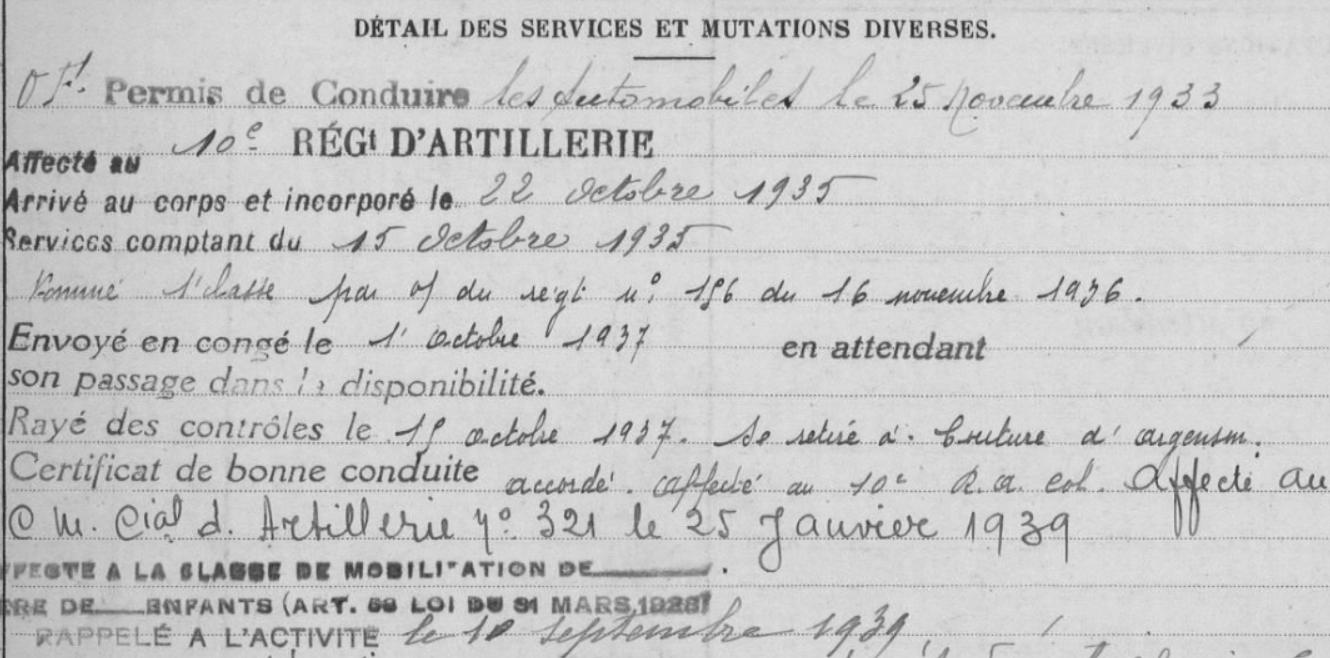 DÉTAIL DES SERVICES ET MUTATIONS DIVERSES.
Permis de Conduire les Automobiles le 25 Novembre 1933
Affecté au 10e RÉGt D'ARTILLERIE
Arrivé au corps et incorporé le 22 Octobre 1935
Services comptant du 15 Octobre 1935
Nommé 1e classe par of du régt n° 196 du 16 novembre 1936.
Envoyé en congé le 1e Octobre 1937 en attendant
son passage dans la disponibilité.
Rayé des contrôles le 15 octobre 1937. Se retire à Couture d'argenson.
Certificat de bonne conduite accordé. affecté au 10e R.a. col. Affecté au
C M. Cial d. Artillerie n° 321 le 25 Janvier 1939
A LA CLASSE DE MOBILISATION DE .
DE ENFANTS (ART. 58 LOI DU 31 MARS 1928)
RAPPELÉ A L'ACTIVITÉ le 10 septembre 1939